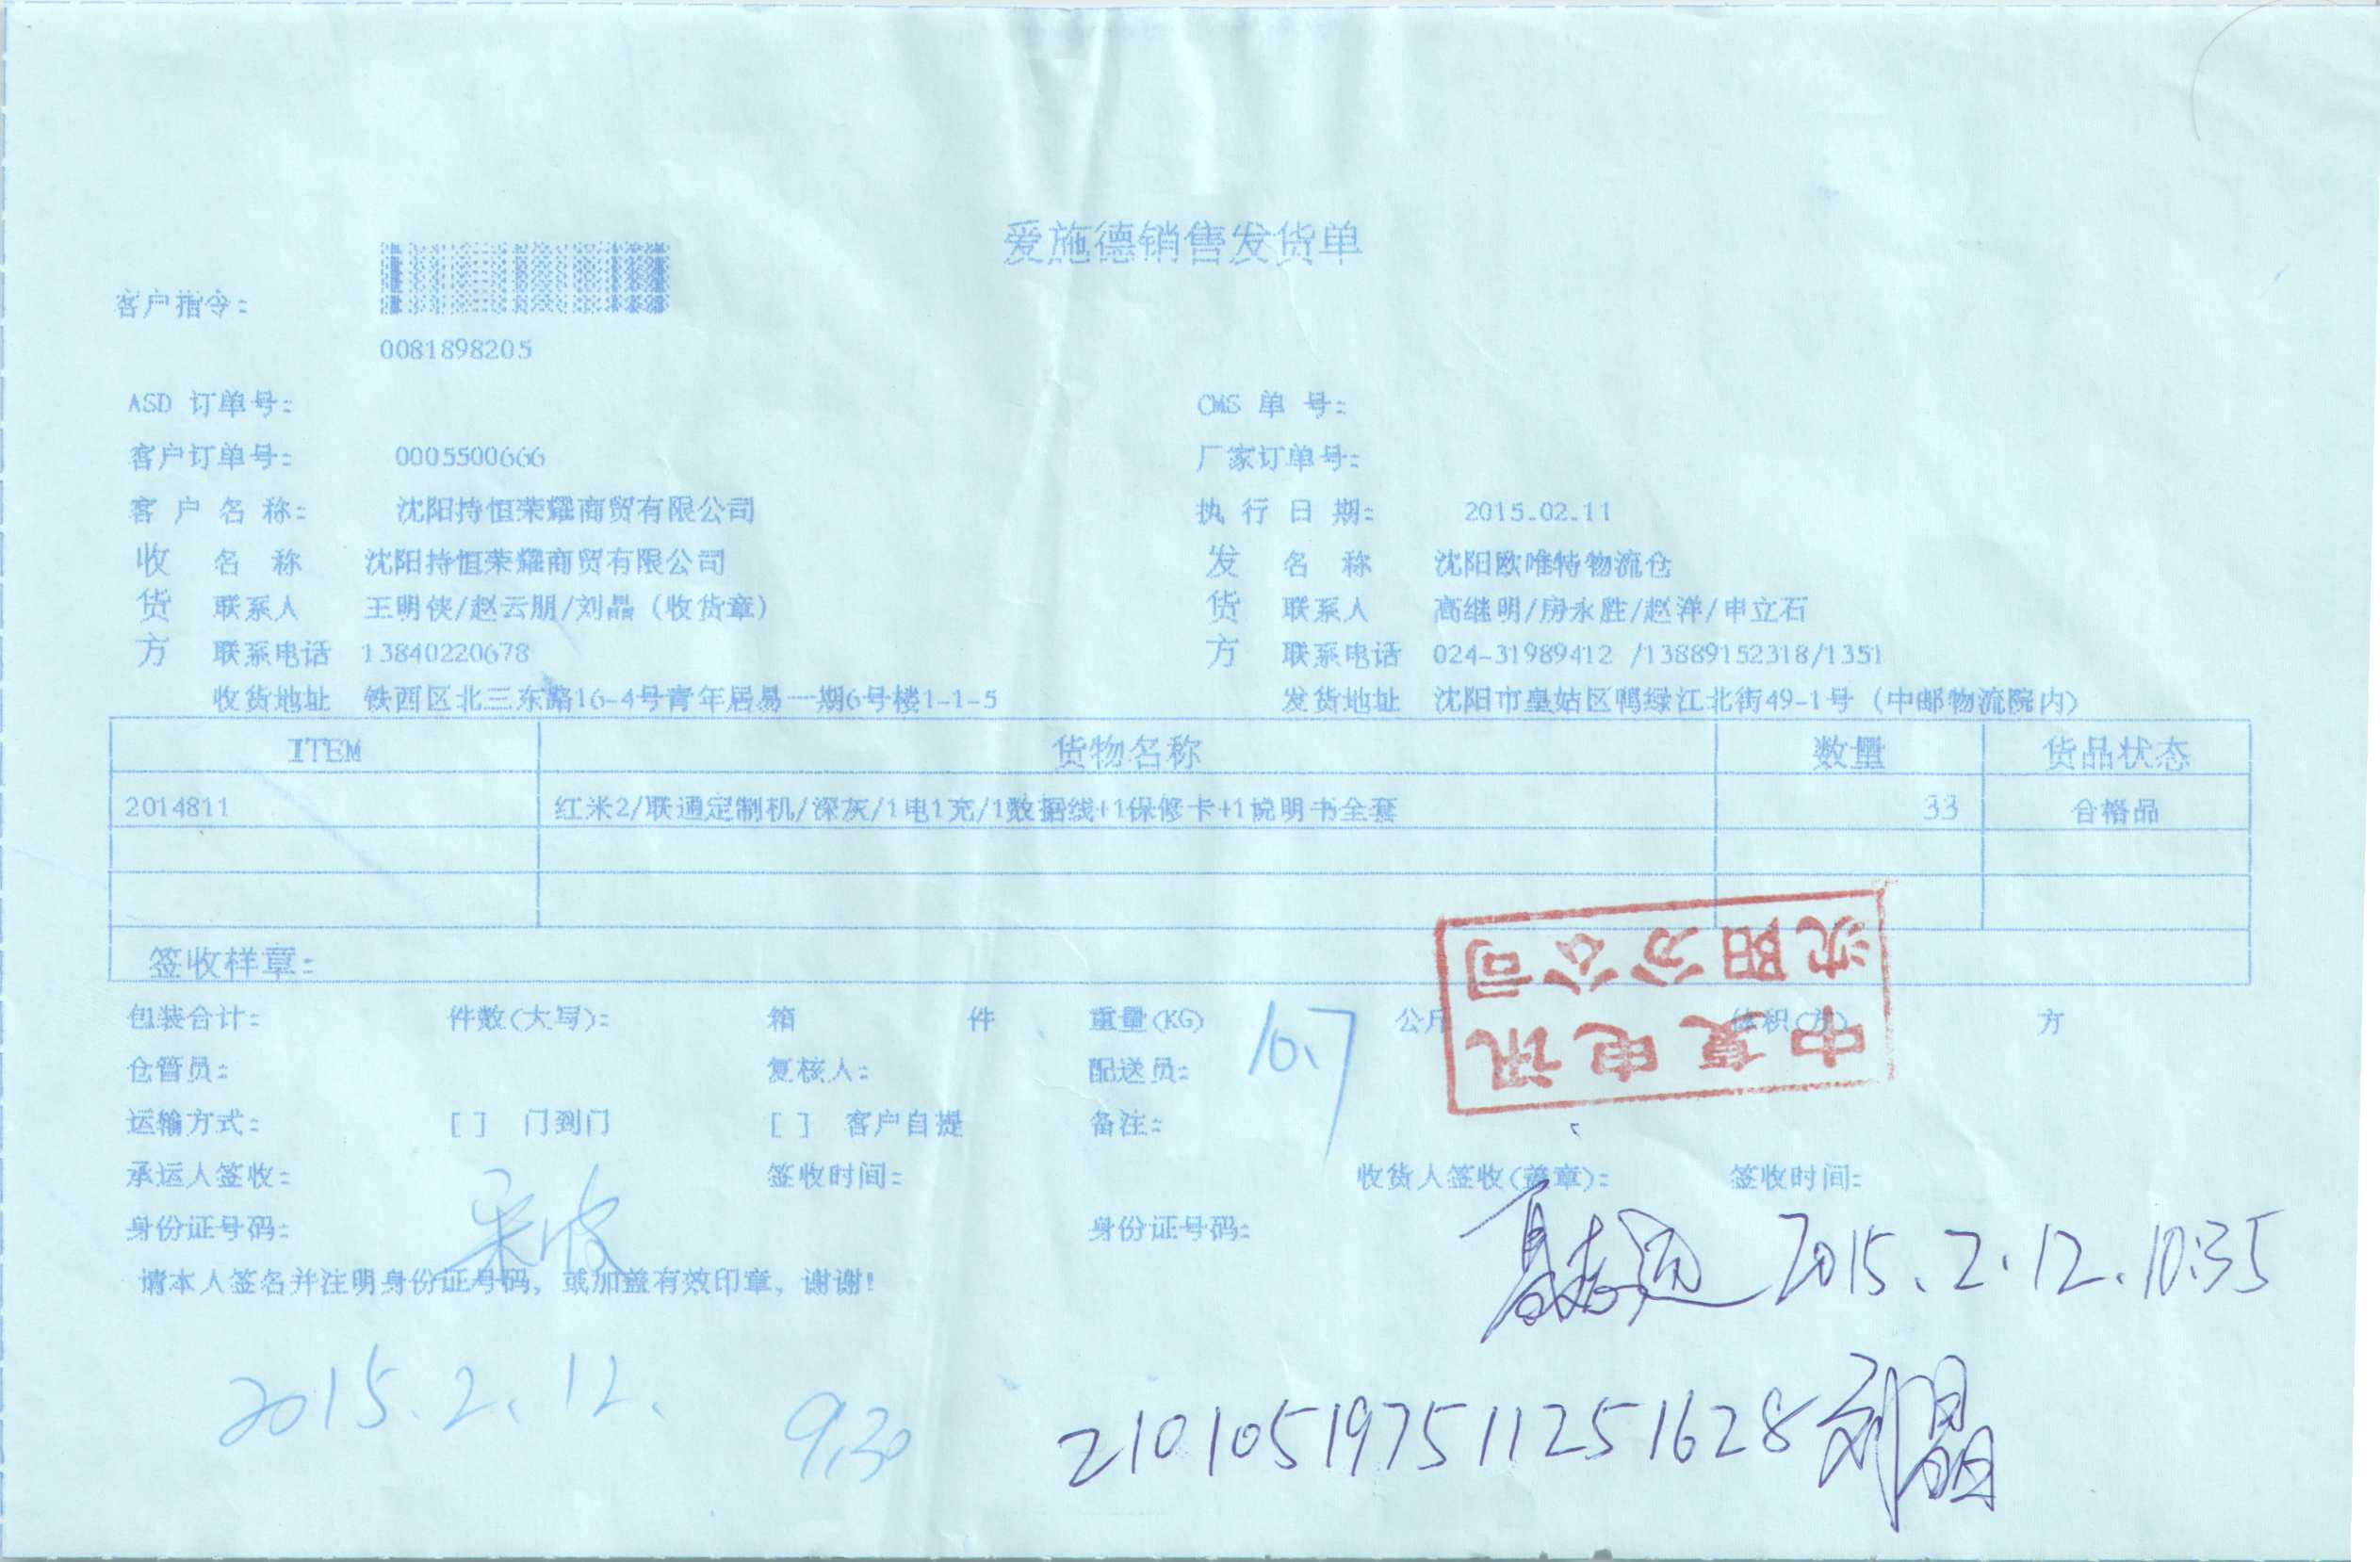 爱施德销售发货单
客户指令：
0081898205
ASD 订单号： CMS 单 号：
客户订单号： 0005500666 厂家订单号：
客 户 名 称： 沈阳持恒荣耀商贸有限公司 执 行 日 期： 2015.02.11
收 名 称 沈阳持恒荣耀商贸有限公司 发 名 称 沈阳欧唯特物流仓
货 联系人 王明侠/赵云朋/刘晶（收货章） 货 联系人 高继明/房永胜/赵洋/申立石
方 联系电话 13840220678 方 联系电话 024-31989412 /13889152318/1351
收货地址 铁西区北三东路16-4号青年居易一期6号楼1-1-5 发货地址 沈阳市皇姑区鸭绿江北街49-1号（中邮物流院内）
ITEM 货物名称 数量 货品状态
2014811 红米2/联通定制机/深灰/1电1充/1数据线+1保修卡+1说明书全套 33 合格品
签收样章：
中复电讯
沈阳分公司
包装合计： 件数(大写)： 箱 件 重量(KG) 10.7 公斤 体积(方) 方
仓管员： 复核人： 配送员：
运输方式： [ ] 门到门 [ ] 客户自提 备注：
承运人签收： 签收时间： 收货人签收(盖章)： 签收时间：
身份证号码： 身份证号码：
2015.2.12.10:35
请本人签名并注明身份证号码，或加盖有效印章，谢谢！
2015.2.12. 9:30
210105197511251628 刘晶